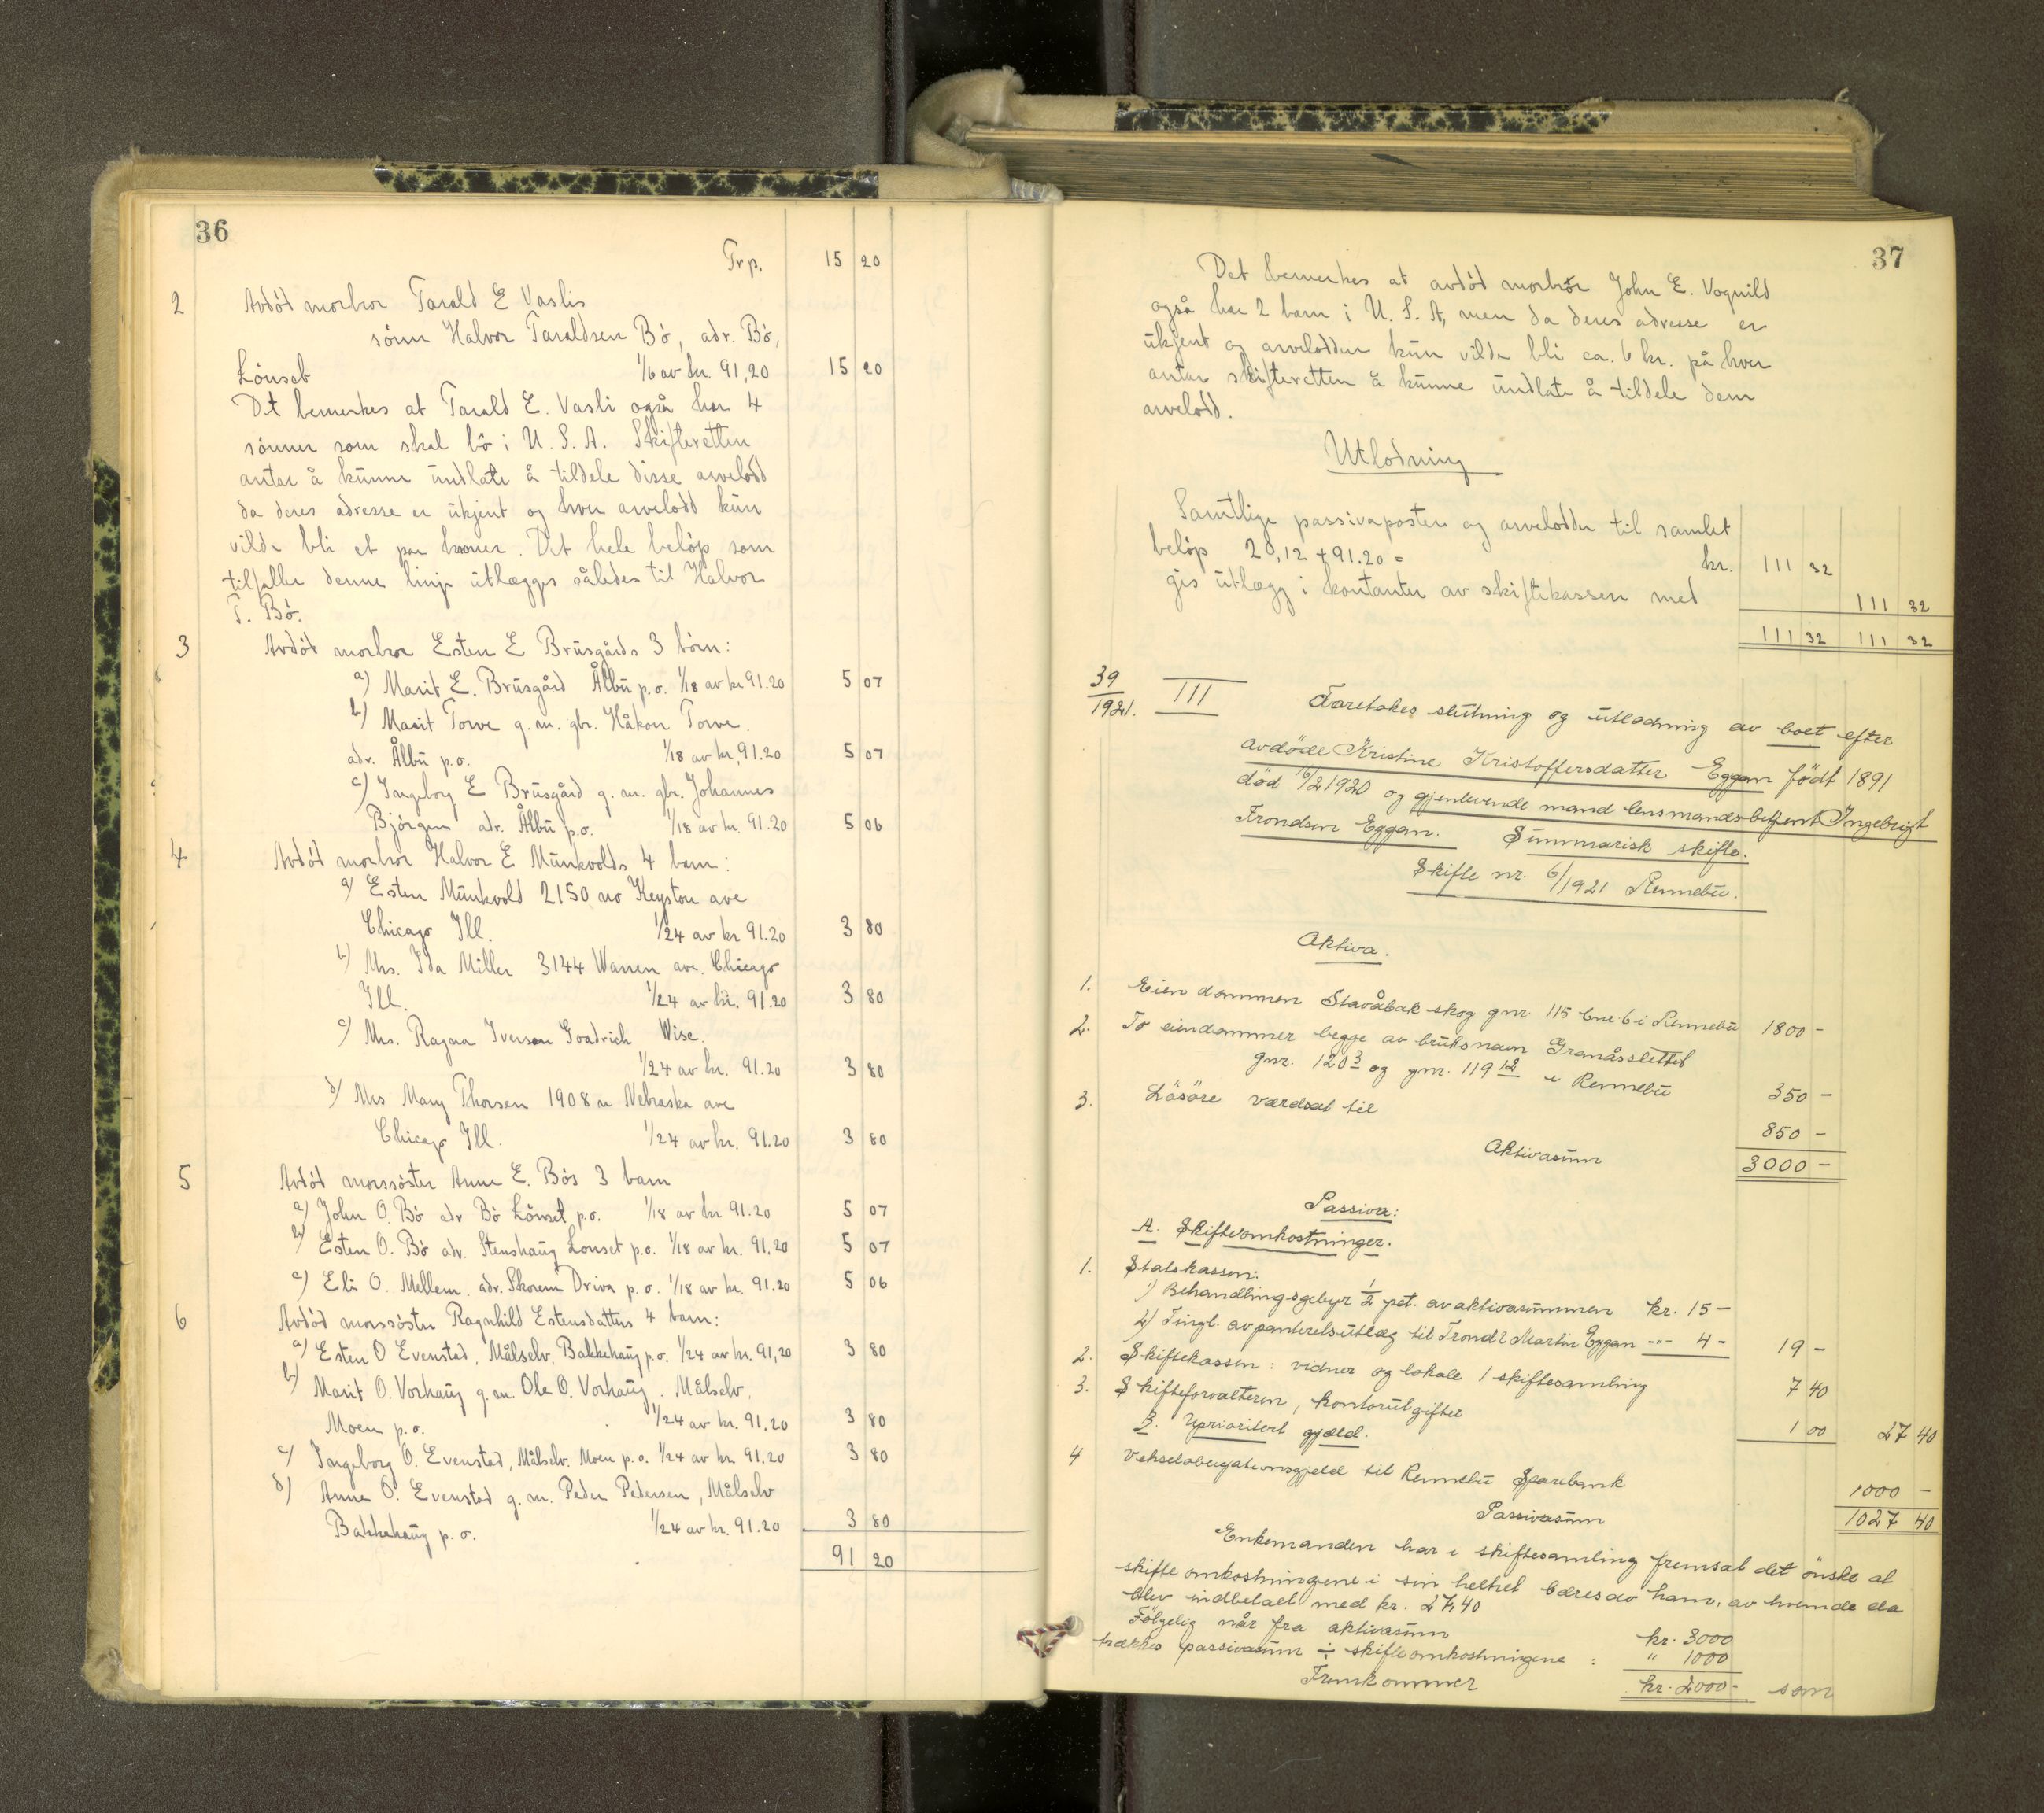 36
Trp. 15 20
2 Avdød morbror Tarald E Vaslis
sønn Halvor Taraldsen Bö, adr. Bö,
Lönset 1/6 av kr. 91,20 15 20
Det bemerkes at Tarald E. Vasli også har 4
sønner som skal bo i U. S. A. Skifteretten
antar å kunne undlate å tildele disse arvelodd
da deres adresse er ukjent og hver arvelodd kun
vilde bli et par kroner. Det hele beløp som
tilfaller denne linje utlægges således til Halvor
T. Bö.
3 Avdød morbror Esten E Brusgårds 3 børn:
a) Marit E. Brusgård Ålbu p.o. 1/18 av kr 91.20 5 07
b) Marit Torve g. m. gbr. Håkon Torve
adr. Ålbu p.o. 1/18 av kr. 91.20 5 07
c) Ingeborg E Brusgård g. m. gbr. Johannes
Bjørgen adr. Ålbu p.o. 1/18 av kr. 91.20 5 06
4 Avdød morbror Halvor E Munkvolds 4 barn:
a) Esten Munkvold 2150 no Keyston ave
Chicago Ill. 1/24 av kr 91.20 3 80
b) Mrs. Ida Miller 3144 Warren ave. Chicago
Ill. 1/24 av kr. 91.20 3 80
c) Mrs. Ragna Iverson Goodrich Wise.
1/24 av kr. 91.20 3 80
d) Mrs Mary Thorsen 1908 n Nebraska ave
Chicago Ill. 1/24 av kr. 91.20 3 80
5 Avdød morssøster Anne E. Bös 3 barn
a) John O. Bö adr Bö Lönset p.o. 1/18 av kr 91.20 5 07
b) Esten O. Bö adr. Stenshaug Lonset p.o. 1/18 av kr. 91,20 5 07
c) Eli O. Mellem. adr. Skorem Driva p. o. 1/18 av kr. 91.20 5 06
6 Avdød morssøster Ragnhild Estensdatters 4 barn:
a) Esten O Evenstad, Målselv, Bakkehaug p.o. 1/24 av kr. 91,20 3 80
b) Marit O. Vorhaug g. m. Ole O. Vorhaug. Målselv.
Moen p.o. 1/24 av kr. 91.20 3 80
c) Ingeborg O. Evenstad, Målselv. Moen p. o. 1/24 av kr. 91.20 3 80
d) Anne O. Evenstad g. m. Peder Pedersen, Målselv
Bakkehaug p. o. 1/24 av kr. 91.20 3 80
91 20
37
Det bemerkes at avdød morbror John E. Vognild
også har 2 barn i U. S. A, men da deres adresse er
ukjent og arvelodden kun vilde bli ca. 6 kr. på hver
antar skifteretten å kunne undlate å tildele dem
arvelodd.
Utlodning
Samtlige passivaposter og arvelodder til samlet
beløp 20,12 + 91.20 = kr. 111 32
gis utlægg i kontanter av skiftekassen med 111 32
111 32 111 32
39/1921. III Foretokes slutning og utlodning av boet efter
avdøde Kristine Kristoffersdatter Eggan født 1891
död 16/2 1920 og gjenlevende mand lensmandsbetjent Ingebrigt
Trondsen Eggan. Summarisk skifte.
Skifte nr. 6/1921 Rennebu.
Aktiva.
1. Eiendommen Stavåbak skog gnr. 115 bnr. 6 i Rennebu 1800 -
2. To eiendommer begge av bruksnavn Granåsslettet
gnr. 120 3 og gnr. 119 12 i Rennebu 350 -
3. Lösöre værdsat til 850 -
Aktivasum 3000 -
Passiva:
A. Skifteomkostninger.
1. Statskassen:
1) Behandlingsgebyr 1/2 pct. av aktivasummen kr. 15 -
2) Tingl. av panteretsutlæg til Trond & Martin Eggan -"- 4 - 19 -
2. Skiftekassen: vidner og lokale 1 skiftesamling 7 40
3. Skifteforvalteren, kontorutgifter 1 00 27 40
B. Uprioritert gjæld.
4 Vekselobligationsgjæld til Rennebu Sparebank 1000 -
Passivasum 1027 40
Enkemanden har i skiftesamling fremsat det önske at
skifteomkostningene i sin helhet bæres av ham, av hvem de da
blev indbetalt med kr. 27,40
Fölgelig når fra aktivasum kr. 3000
trækkes passivasum ÷ skifteomkostningene : " 1000
Fremkommer kr. 2000 - som